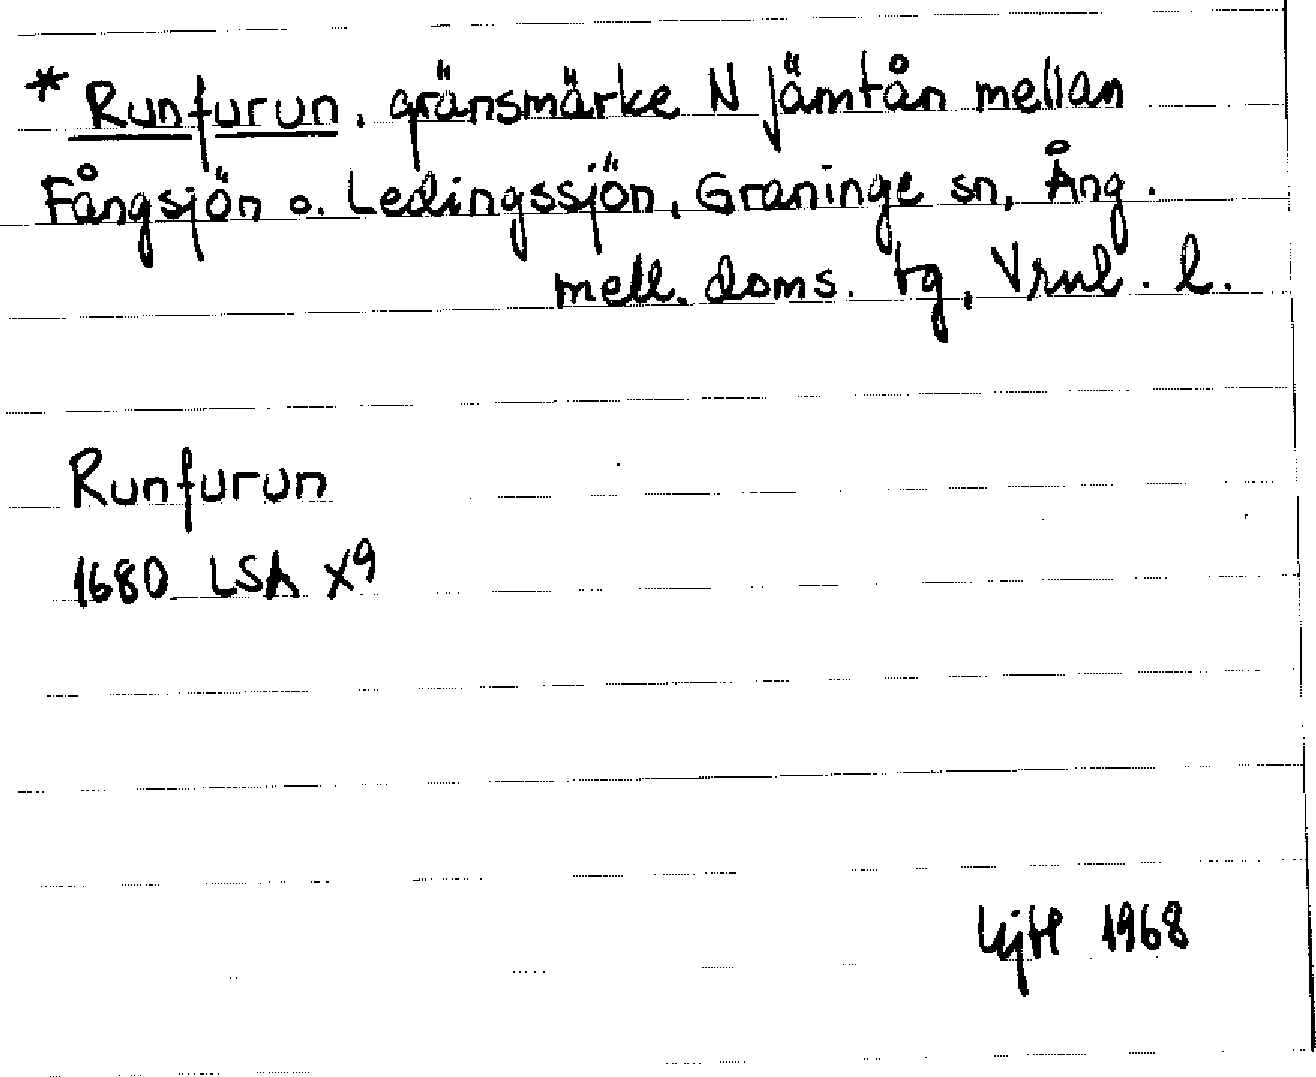 * Runfurun, gränsmärke N Jämtån mellan
Fångsjön o. Ledingssjön, Graninge sn, Ång.
mell. doms. tg, Vrnl. l.
Runfurun
1680 LSA X9
1968